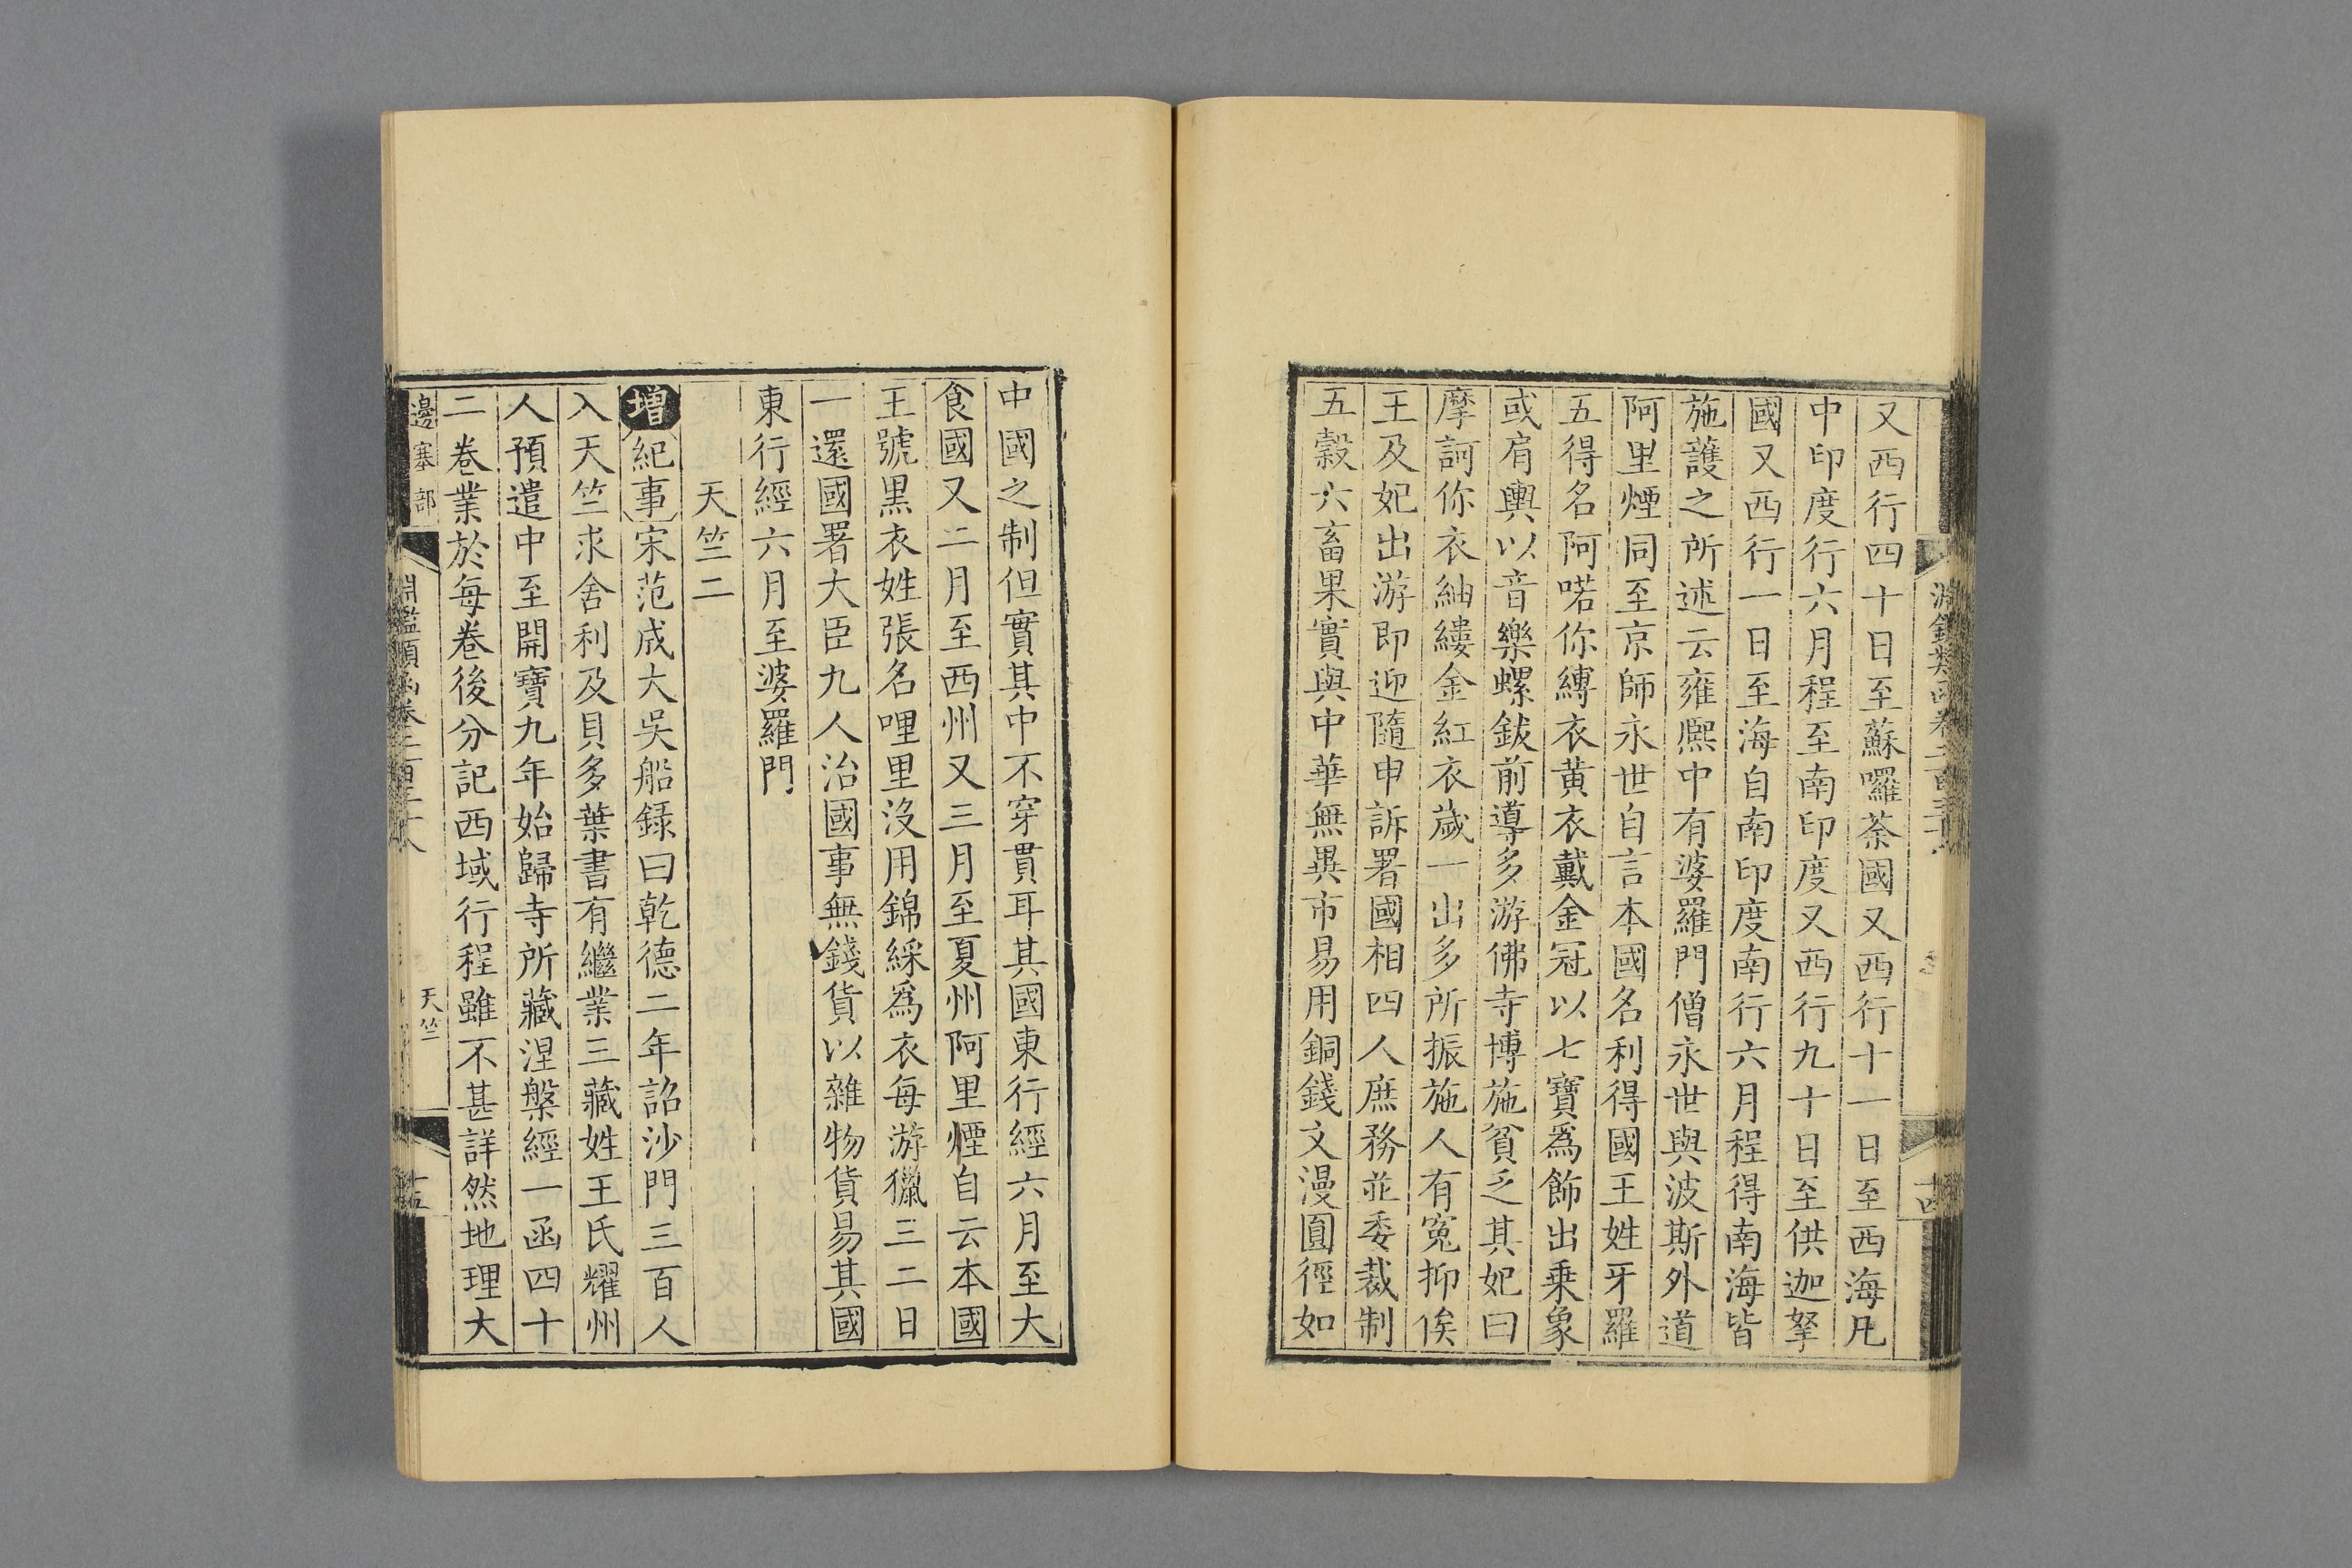 又西行四十日至蘇囉荼國又西行十一日至西海凡
中印度行六月程至南印度又西行九十日至供迦拏
國又西行一日至海自南印度南行六月程得南海皆
施護之所述云雍熙中有婆羅門僧永世與波斯外道
阿里煙同至京師永世自言本國名利得國王姓牙羅
五得名阿喏你縛衣黄衣戴金冠以七寶爲飾出乗象
或肩輿以音樂螺鈸前導多游佛寺博施貧乏其妃曰
摩訶你衣紬縷金紅衣歲一出多所振施人有寃抑俟
王及妃出游即迎隨申訴署國相四人庶務並委裁制
五穀六畜果實與中華無異市易用銅錢文漫圓徑如
中國之制但實其中不穿貫耳其國東行經六月至大
食國又二月至西州又三月至夏州阿里煙自云本國
王號黒衣姓張名哩里沒用錦綵爲衣每游獵三二日
一還國署大臣九人治國事無錢貨以雜物貨易其國
東行經六月至婆羅門
天竺二
增 紀事 宋范成大吳船録曰乾德二年詔沙門三百人
入天竺求舍利及貝多葉書有繼業三藏姓王氏耀州
人預遣中至開寶九年始歸寺所藏涅槃經一函四十
二卷業於每卷後分記西域行程雖不甚詳然地理大
邊塞部
淵鑑類函卷二百三十八
天竺
十五